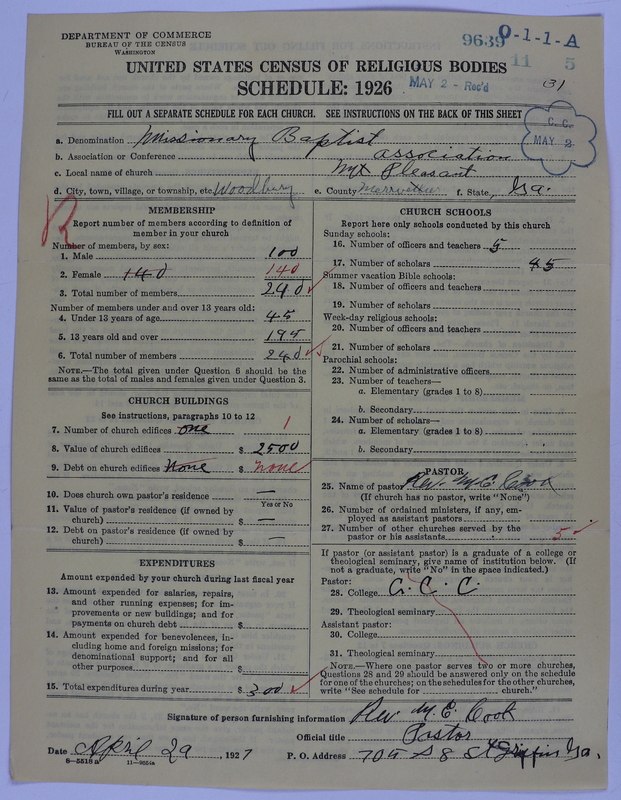 DEPARTMENT OF COMMERCE
BUREAU OF THE CENSUS
WASHINGTON
9639 0-1-1-A
11 5
UNITED STATES CENSUS OF RELIGIOUS BODIES
SCHEDULE: 1926
MAY 2 - Rec'd
(3)
FILL OUT A SEPARATE SCHEDULE FOR EACH CHURCH. SEE INSTRUCTIONS ON THE BACK OF THIS SHEET
C. C.
MAY 2
a. Denomination Missionary Baptist
b. Association or Conference association
c. Local name of church Mt Pleasant
d. City, town, village, or township, etc. Woodbury e. County Merriwether f. State, Ga.
MEMBERSHIP
Report number of members according to definition of
member in your church
Number of members, by sex:
1. Male 100
2. Female 140 140
3. Total number of members 240
Number of members under and over 13 years old:
4. Under 13 years of age 45
5. 13 years old and over 195
6. Total number of members 240
NOTE.—The total given under Question 6 should be
same as the total of males and females given under Question 3.
CHURCH BUILDINGS
See instructions, paragraphs 10 to 12
7. Number of church edifices one 1
8. Value of church edifices $ 2500
9. Debt on church edifices None $ none
10. Does church own pastor's residence —
Yes or No
11. Value of pastor's residence (if owned by
church) $ —
12. Debt on pastor's residence (if owned by
church) $ —
EXPENDITURES
Amount expended by your church during last fiscal year
13. Amount expended for salaries, repairs,
and other running expenses; for im-
provements or new buildings; and for
payments on church debt $
14. Amount expended for benevolences, in-
cluding home and foreign missions; for
denominational support; and for all
other purposes $
15. Total expenditures during year $ 300
CHURCH SCHOOLS
Report here only schools conducted by this church
Sunday schools:
16. Number of officers and teachers 5
17. Number of scholars 45
Summer vacation Bible schools:
18. Number of officers and teachers
19. Number of scholars
Week-day religious schools:
20. Number of officers and teachers
21. Number of scholars
Parochial schools:
22. Number of administrative officers
23. Number of teachers—
a. Elementary (grades 1 to 8)
b. Secondary
24. Number of scholars—
a. Elementary (grades 1 to 8)
b. Secondary
PASTOR
25. Name of pastor Rev. M. E. Cook
(If church has no pastor, write "None")
26. Number of ordained ministers, if any, em-
ployed as assistant pastors
27. Number of other churches served by the
pastor or his assistants 5
If pastor (or assistant pastor) is a graduate of a college or
theological seminary, give name of institution below. (If
not a graduate, write "No" in the space indicated.)
Pastor:
28. College G. C. C.
29. Theological seminary
Assistant pastor:
30. College
31. Theological seminary
NOTE.—Where one pastor serves two or more churches,
Questions 28 and 29 should be answered only on the schedule
for one of the churches; on the schedules for the other churches,
write "See schedule for church."
Signature of person furnishing information Rev M. E. Cook
Official title Pastor
Date April 29, 1927 P. O. Address 709 S 8 St Griffin Ga.
8—5518 a 11—9554a